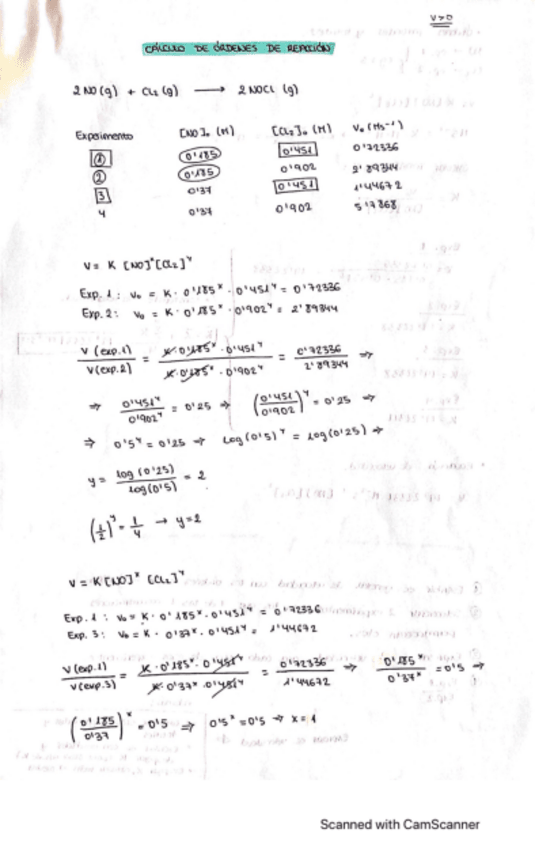 V>0
CÁLCULO DE ÓRDENES DE REACCIÓN
2NO(g) + Cl₂(g) ⟶ 2NOCl (g)
Experimento [NO]₀ (M) [Cl₂]₀ (M) V₀ (Ms⁻¹)
① 0'185 0'451 0'72336
② 0'185 0'902 2'89344
3 0'37 0'451 1'44672
4 0'37 0'902 5'7868
V = K [NO]ˣ [Cl₂]ʸ
Exp. 1: V₀ = K · 0'185ˣ · 0'451ʸ = 0'72336
Exp. 2: V₀ = K · 0'185ˣ · 0'902ʸ = 2'89344
V (exp.1) / V (exp.2) = K · 0'185ˣ · 0'451ʸ / K · 0'185ˣ · 0'902ʸ = 0'72336 / 2'89344 ⇒
⇒ 0'451ʸ / 0'902ʸ = 0'25 ⇒ (0'451 / 0'902)ʸ = 0'25 ⇒
⇒ 0'5ʸ = 0'25 ⇒ Log (0'5)ʸ = Log (0'25) ⇒
y = log (0'25) / log (0'5) = 2
(1/2)ʸ = 1/4 → y=2
V = K [NO]ˣ [Cl₂]ʸ
Exp. 1 : V₀ = K · 0'185ˣ · 0'451ʸ = 0'72336
Exp. 3: V₀ = K · 0'37ˣ · 0'451ʸ = 1'44672
V (exp.1) / V (exp.3) = K · 0'185ˣ · 0'451ʸ / K · 0'37ˣ · 0'451ʸ = 0'72336 / 1'44672 ⇒ 0'185ˣ / 0'37ˣ = 0'5 ⇒
(0'185 / 0'37)ˣ = 0'5 ⇒ 0'5ˣ = 0'5 ⇒ x = 1
Scanned with CamScanner